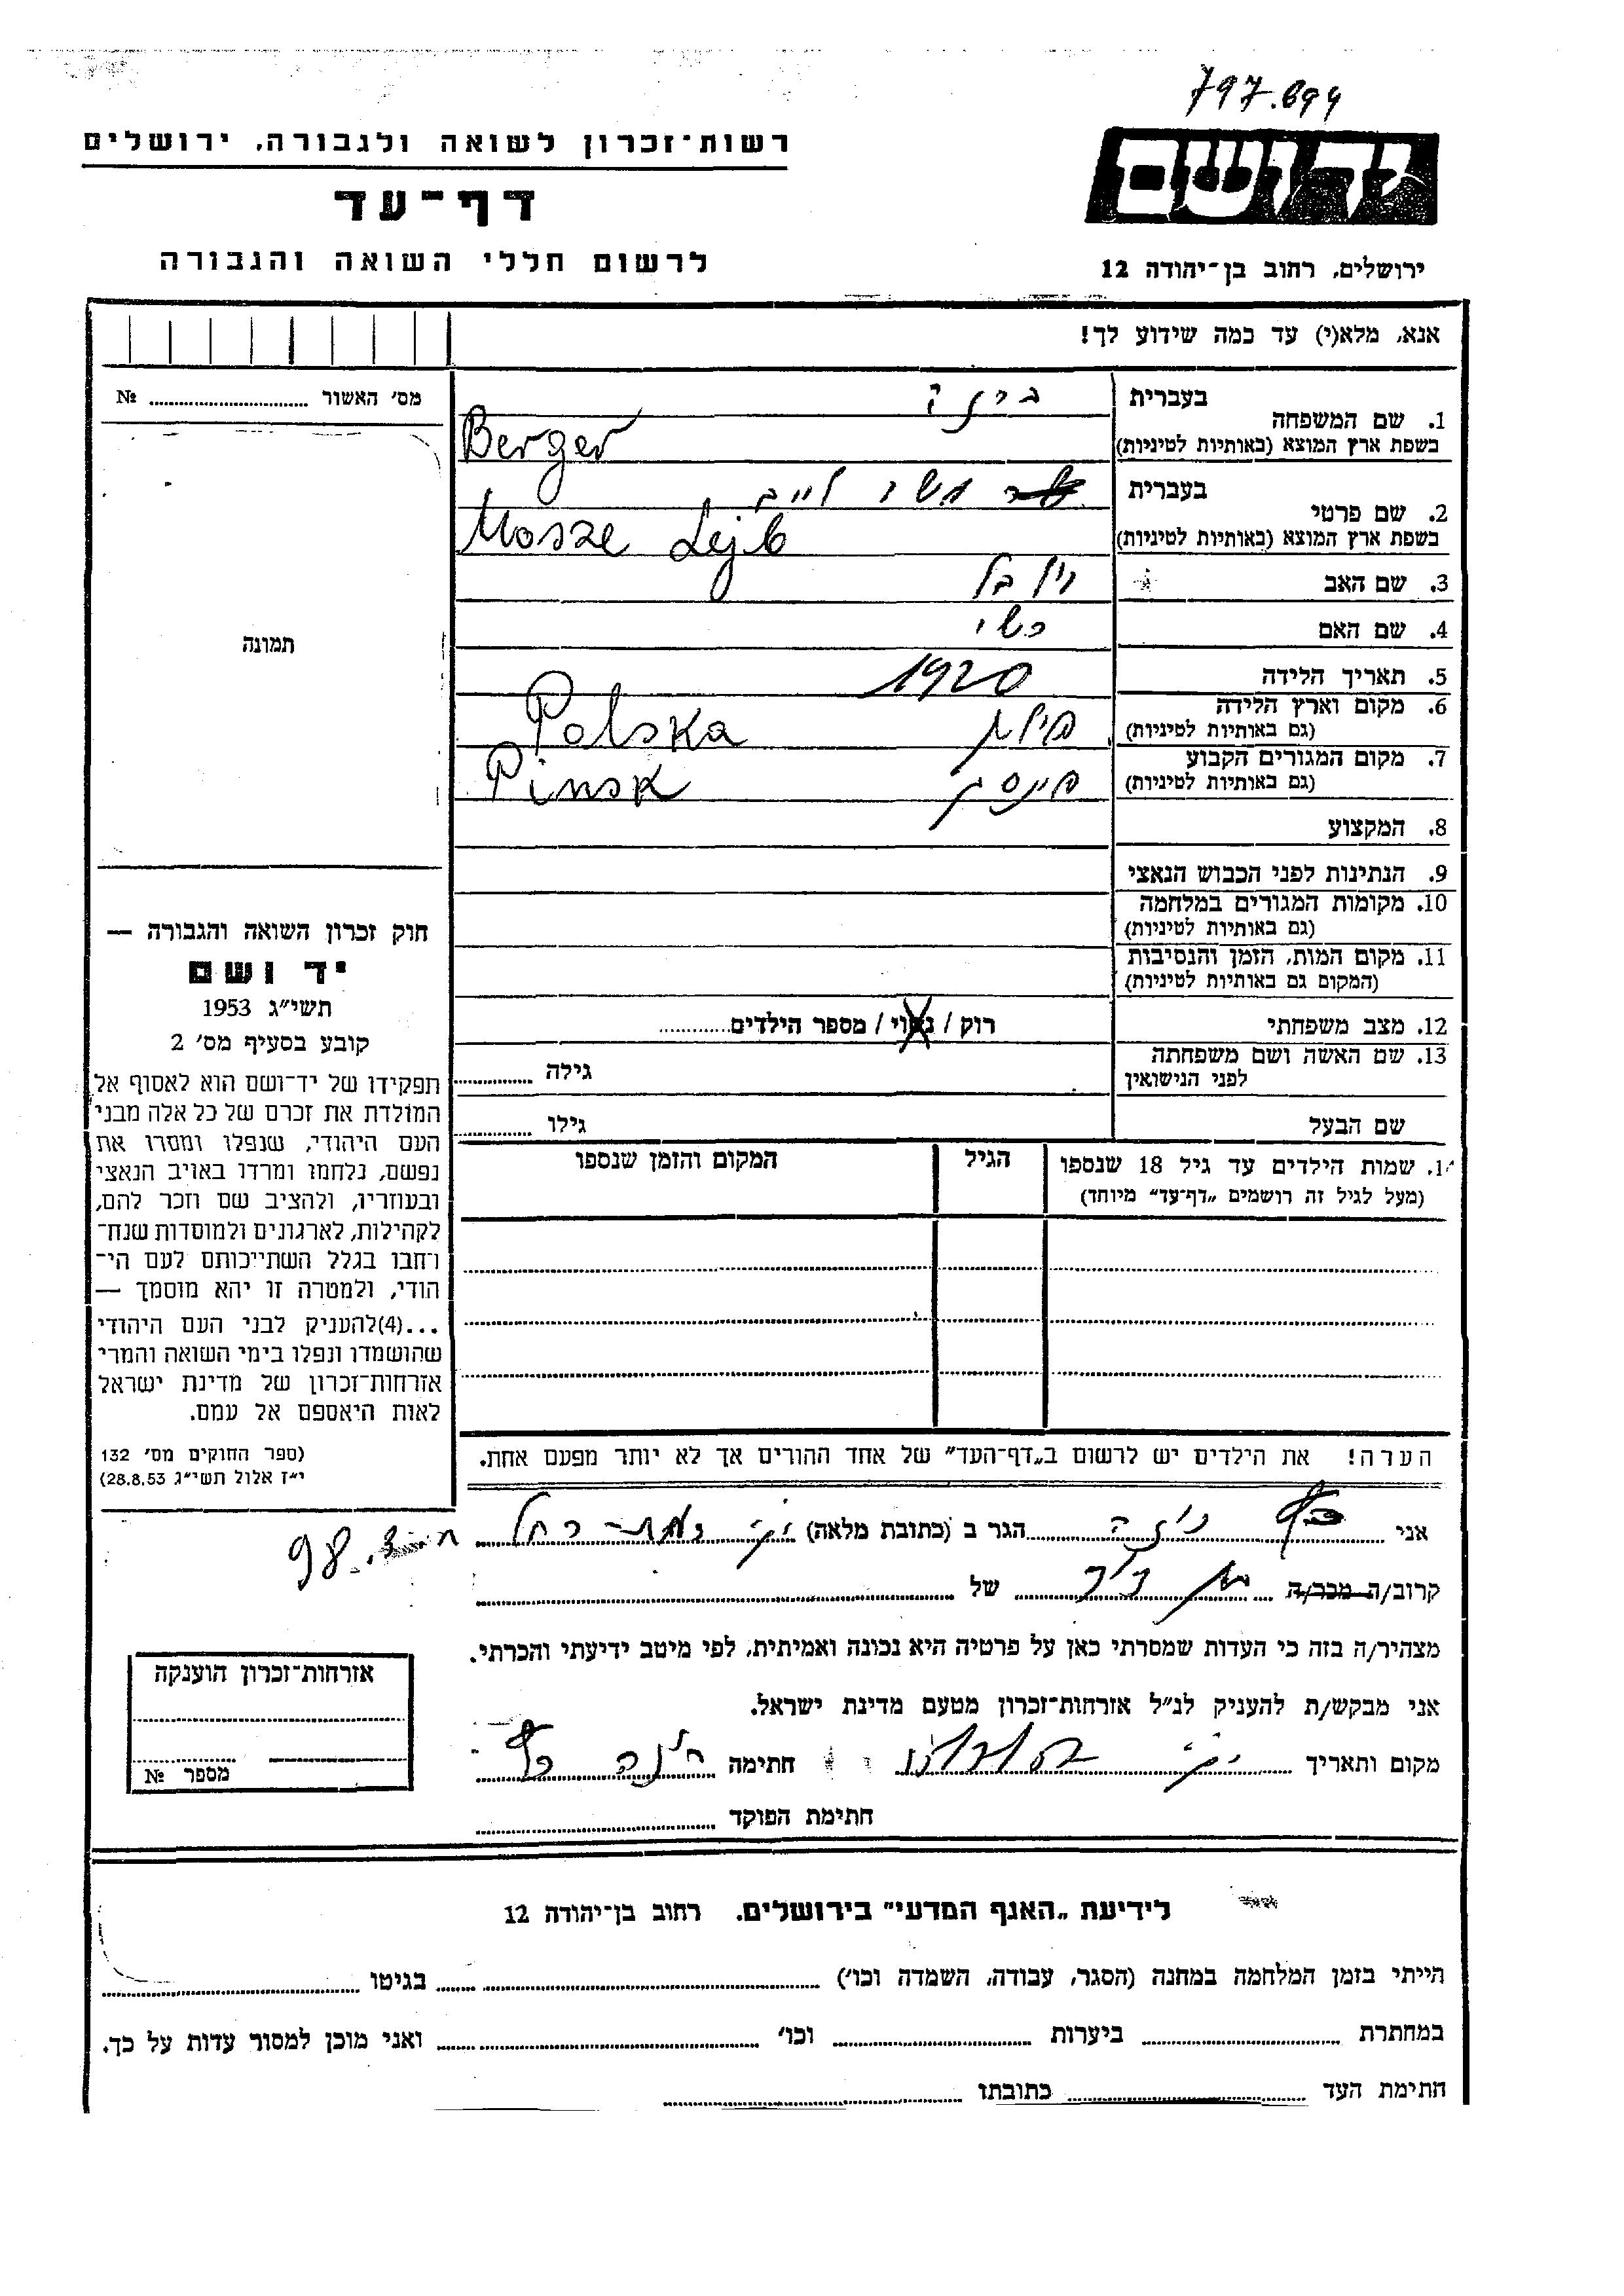 797.694
רשות־זכרון לשואה ולגבורה, ירושלים
דף־עד
לרשום חללי השואה והגבורה
יד ושם
ירושלים, רחוב בן־יהודה 12
אנא, מלא(י) עד כמה שידוע לך!
מס׳ האשור № ........
תמונה
1. שם המשפחה
בעברית
בשפת ארץ המוצא (באותיות לטיניות) Berger
2. שם פרטי
בעברית
בשפת ארץ המוצא (באותיות לטיניות) Mosze Lejb
3. שם האב
4. שם האם
5. תאריך הלידה 1920
6. מקום וארץ הלידה
(גם באותיות לטיניות) פולין Polska
7. מקום המגורים הקבוע
(גם באותיות לטיניות) פינסק Pinsk
8. המקצוע
9. הנתינות לפני הכבוש הנאצי
10. מקומות המגורים במלחמה
(גם באותיות לטיניות)
11. מקום המות, הזמן והנסיבות
(המקום גם באותיות לטיניות)
12. מצב משפחתי רוק / נשוי / מספר הילדים........
13. שם האשה ושם משפחתה
לפני הנישואין
גילה ........
שם הבעל גילו ........
14. שמות הילדים עד גיל 18 שנספו
(מעל לגיל זה רושמים „דף־עד״ מיוחד)
הגיל
המקום והזמן שנספו
הערה! את הילדים יש לרשום ב„דף־העד״ של אחד ההורים אך לא יותר מפעם אחת.
חוק זכרון השואה והגבורה —
יד ושם
תשי״ג 1953
קובע בסעיף מס׳ 2
תפקידו של יד־ושם הוא לאסוף אל
המולדת את זכרם של כל אלה מבני
העם היהודי, שנפלו ומסרו את
נפשם, נלחמו ומרדו באויב הנאצי
ובעוזריו, ולהציב שם וזכר להם,
לקהילות, לארגונים ולמוסדות שנח־
רחבו בגלל השתייכותם לעם הי־
הודי, ולמטרה זו יהא מוסמך —
...(4)להעניק לבני העם היהודי
שהושמדו ונפלו בימי השואה והמרי
אזרחות־זכרון של מדינת ישראל
לאות היאספם אל עמם.
(ספר החוקים מס׳ 132
י״ז אלול תשי״ג 28.8.53)
אני ........ הגר ב (כתובת מלאה) ........
98
קרוב/ה מכר/ה ........ של ........
מצהיר/ה בזה כי העדות שמסרתי כאן על פרטיה היא נכונה ואמיתית, לפי מיטב ידיעתי והכרתי.
אני מבקש/ת להעניק לנ״ל אזרחות־זכרון מטעם מדינת ישראל.
מקום ותאריך ........ חתימה ........
חתימת הפוקד ........
אזרחות־זכרון הוענקה
מספר №
לידיעת „האגף המדעי״ בירושלים, רחוב בן־יהודה 12
הייתי בזמן המלחמה במחנה (הסגר, עבודה, השמדה וכו׳) ........ בגיטו ........
במחתרת ........ ביערות ........ וכו׳ ........ ואני מוכן למסור עדות על כך.
חתימת העד ........ כתובתו ........